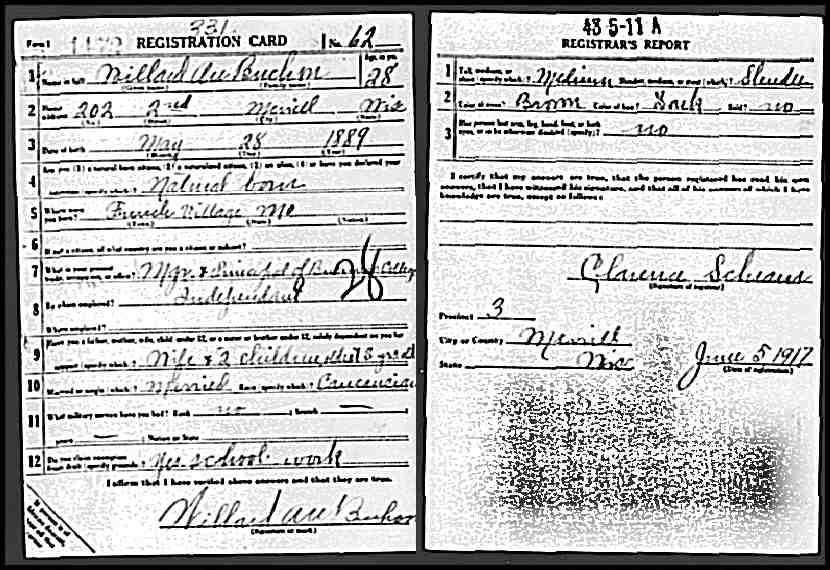 331
Form 1 REGISTRATION CARD No. 62
Age, in yrs.
1 Name in full Willard 28
(Given name) (Family name)
2 Home address 202 2nd Merrill Wis
(No.) (Street) (City) (State)
3 Date of birth May 28 1889
(Month) (Day) (Year)
Are you (1) a natural born citizen, (2) a naturalized citizen, (3) an alien, (4) or have you declared your
4 intention (specify which)? Natural born
5 Where were you born? French Village Mo
(Town) (State) (Nation)
6 If not a citizen, of what country are you a citizen or subject?
7 What is your present trade, occupation, or office? Mgr. & Principal of College
28
8 By whom employed? Independent
Where employed?
9 Have you a father, mother, wife, child under 12, or a sister or brother under 12, solely dependent on you for
support (specify which)? Wife & 2 children
10 Married or single (which)? Married Race (specify which)? Caucasian
11 What military service have you had? Rank no ; branch —
years — ; Nation or State
12 Do you claim exemption from draft (specify grounds)? Yes school work
I affirm that I have verified above answers and that they are true.
Willard
(Signature or mark)
43 5-11 A
REGISTRAR'S REPORT
1 Tall, medium, or short (specify which)? Medium Slender, medium, or stout (which)? Slender
2 Color of eyes? Brown Color of hair? Dark Bald? no
3 Has person lost arm, leg, hand, foot, or both eyes, or is he otherwise disabled (specify)? no
I certify that my answers are true, that the person registered has read his own
answers, that I have witnessed his signature, and that all of his answers of which I have
knowledge are true, except as follows:
Clarence
(Signature of registrar)
Precinct 3
City or County Merrill
State Wis June 5 1917
(Date of registration)